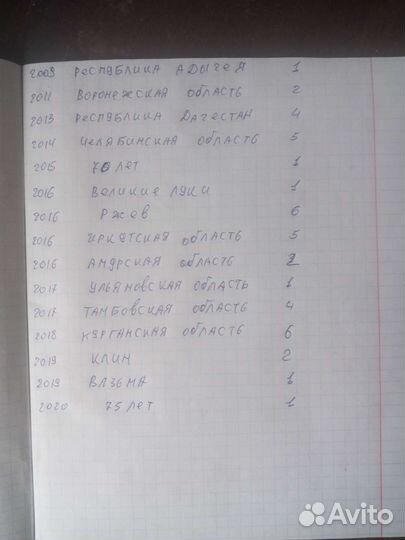 2009 РЕСПУБЛИКА АДЫГЕЯ 1
2011 ВОРОНЕЖСКАЯ ОБЛАСТЬ 2
2013 РЕСПУБЛИКА ДАГЕСТАН 4
2014 ЧЕЛЯБИНСКАЯ ОБЛАСТЬ 5
2015 70 ЛЕТ 1
2016 ВЕЛИКИЕ ЛУКИ 1
2016 РЖЕВ 6
2016 ИРКУТСКАЯ ОБЛАСТЬ 5
2016 АМУРСКАЯ ОБЛАСТЬ 2
2017 УЛЬЯНОВСКАЯ ОБЛАСТЬ 1
2017 ТАМБОВСКАЯ ОБЛАСТЬ 4
2018 КУРГАНСКАЯ ОБЛАСТЬ 6
2019 КЛИН 2
2019 ВЯЗЬМА 1
2020 75 ЛЕТ 1
Avito